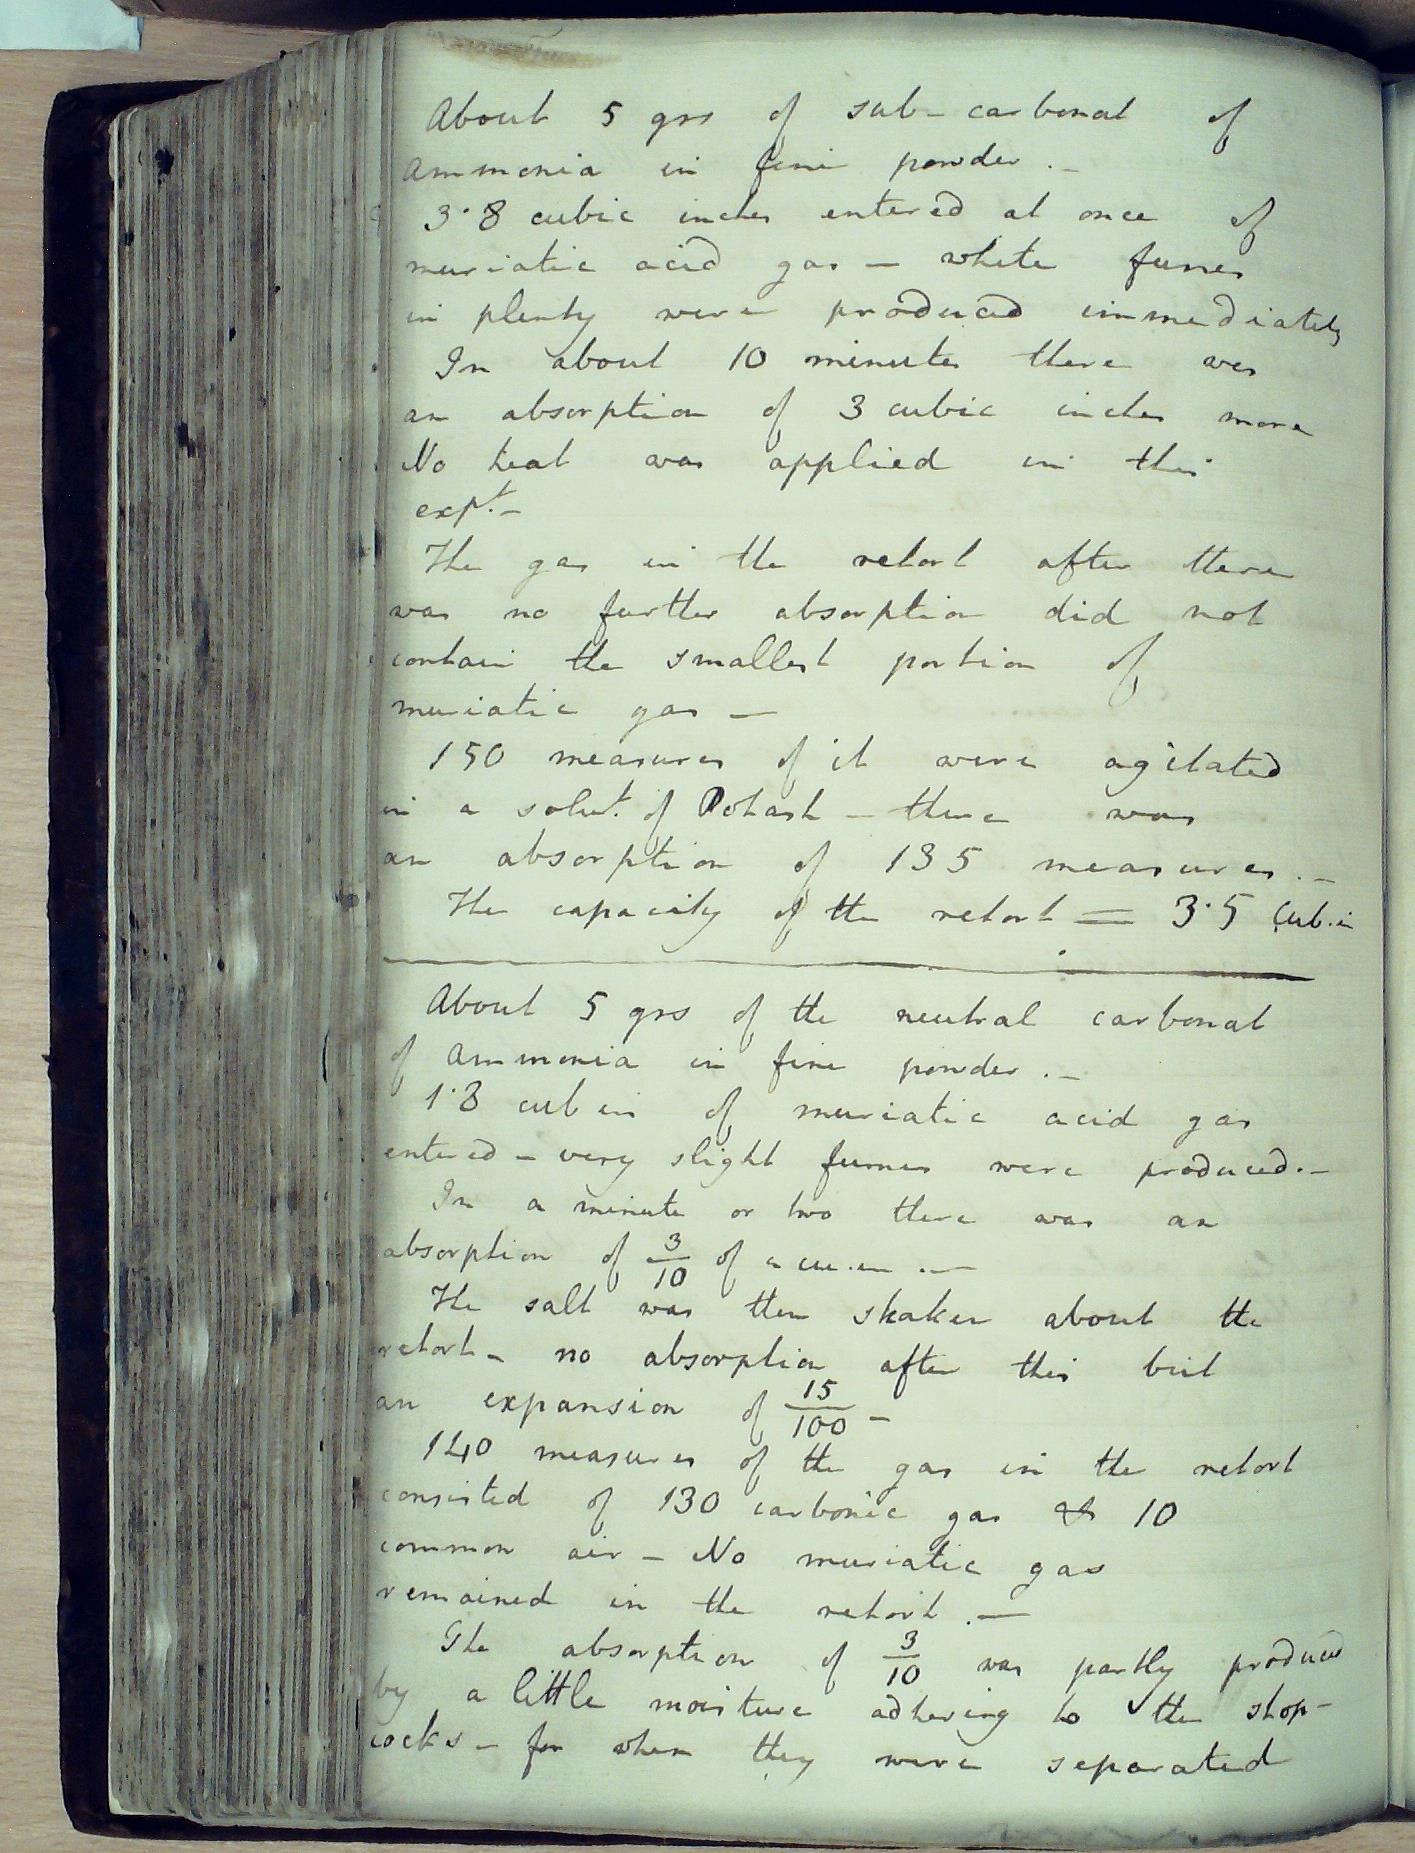 About 5 grs of sub-carbonat of
Ammonia in fine powder.-
3·8 cubic inches entered at once of
muriatic acid gas - white fumes
in plenty were produced immediately
In about 10 minutes there was
an absorption of 3 cubic inches more
No heat was applied in this
expt.-
The gas in the retort after there
was no further absorption did not
contain the smallest portion of
muriatic gas -
150 measures of it were agitated
in a solut. of Potash - there was
an absorption of 135 measures.-
The capacity of the retort = 3·5 Cub.in
About 5 grs of the neutral carbonat
of Ammonia in fine powder.-
1·8 cub in of muriatic acid gas
entered - very slight fumes were produced.-
In a minute or two there was an
absorption of 3/10 of a cu.in.-
The salt was then shaken about the
retort - no absorption after this but
an expansion of 15/100 -
140 measures of the gas in the retort
consisted of 130 carbonic gas & 10
common air - No muriatic gas
remained in the retort.-
The absorption of 3/10 was partly produced
by a little moisture adhering to the stop-
cocks - for when they were separated